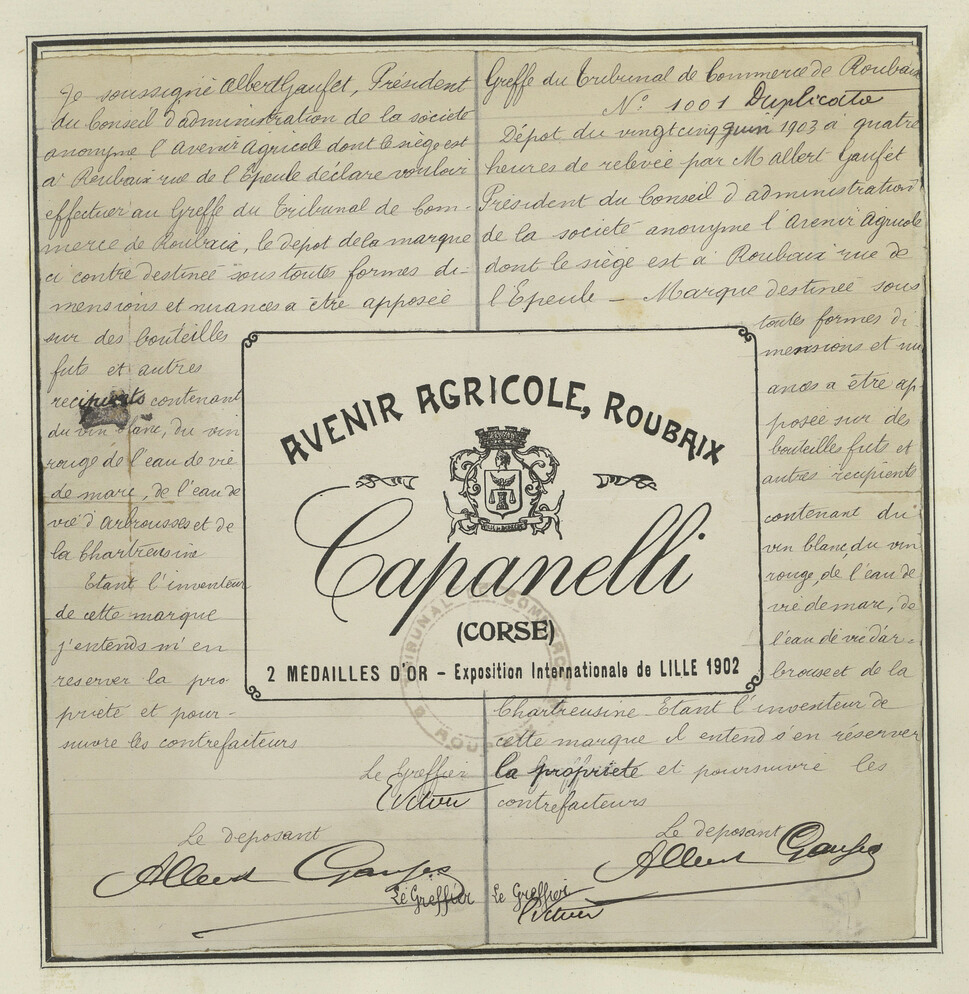 Je soussigné Albert Gaufet, Président
du Conseil d'administration de la société
anonyme l'Avenir Agricole dont le siège est
a Roubaix rue de l'Epeule déclare vouloir
effectuer au Greffe du Tribunal de Com-
merce de Roubaix, le depot de la marque
ci contre destinée sous toutes formes di-
mensions et nuances a être apposée
sur des bouteilles
futs et autres
recipients contenant
du vin blanc, du vin
rouge de l'eau de vie
de marc, de l'eau de
vie d'Arbrousses et de
la Chartreusine
Etant l'inventeur
de cette marque
j'entends m'en
reserver la pro
prieté et pour-
suivre les contrefaiteurs
Le Greffier
Le deposant
Albert Gaufet
Le Greffier
Greffe du Tribunal de Commerce de Roubaix
N° 1001 Duplicata
Dépot du vingt cinq Juin 1903 a quatre
heures de relevée par M Albert Gaufet
Président du Conseil d'administration
de la société anonyme l'Avenir Agricole
dont le siège est a Roubaix rue de
l'Epeule - Marque destinée sous
toutes formes di
mensions et nu
ances a être ap
posée sur des
bouteilles futs et
autres récipients
contenant du
vin blanc, du vin
rouge, de l'eau de
vie de marc, de
l'eau de vie d'ar-
brouse et de la
Chartreusine. Etant l'inventeur de
cette marque il entend s'en réserver
la propriété et poursuivre les
contrefacteurs
Le deposant
Albert Gaufet
Le Greffier
AVENIR AGRICOLE, ROUBAIX
Capanelli
(CORSE)
2 MÉDAILLES D'OR – Exposition Internationale de LILLE 1902
TRIBUNAL DE COMMERCE
ROUBAIX